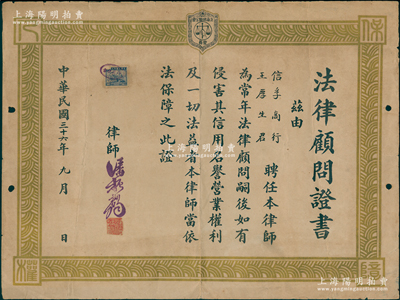 上海陽明拍賣
www.ymauction.com
保
法律顧問證書
茲由
信孚商行
王厚生君
聘任本律師
為常年法律顧問嗣後如有
侵害其信用名譽營業權利
及一切法益本律師當依
法保障之此證
律師
中華民國三十六年九月 日
權
上海陽明拍賣
www.ymauction.com